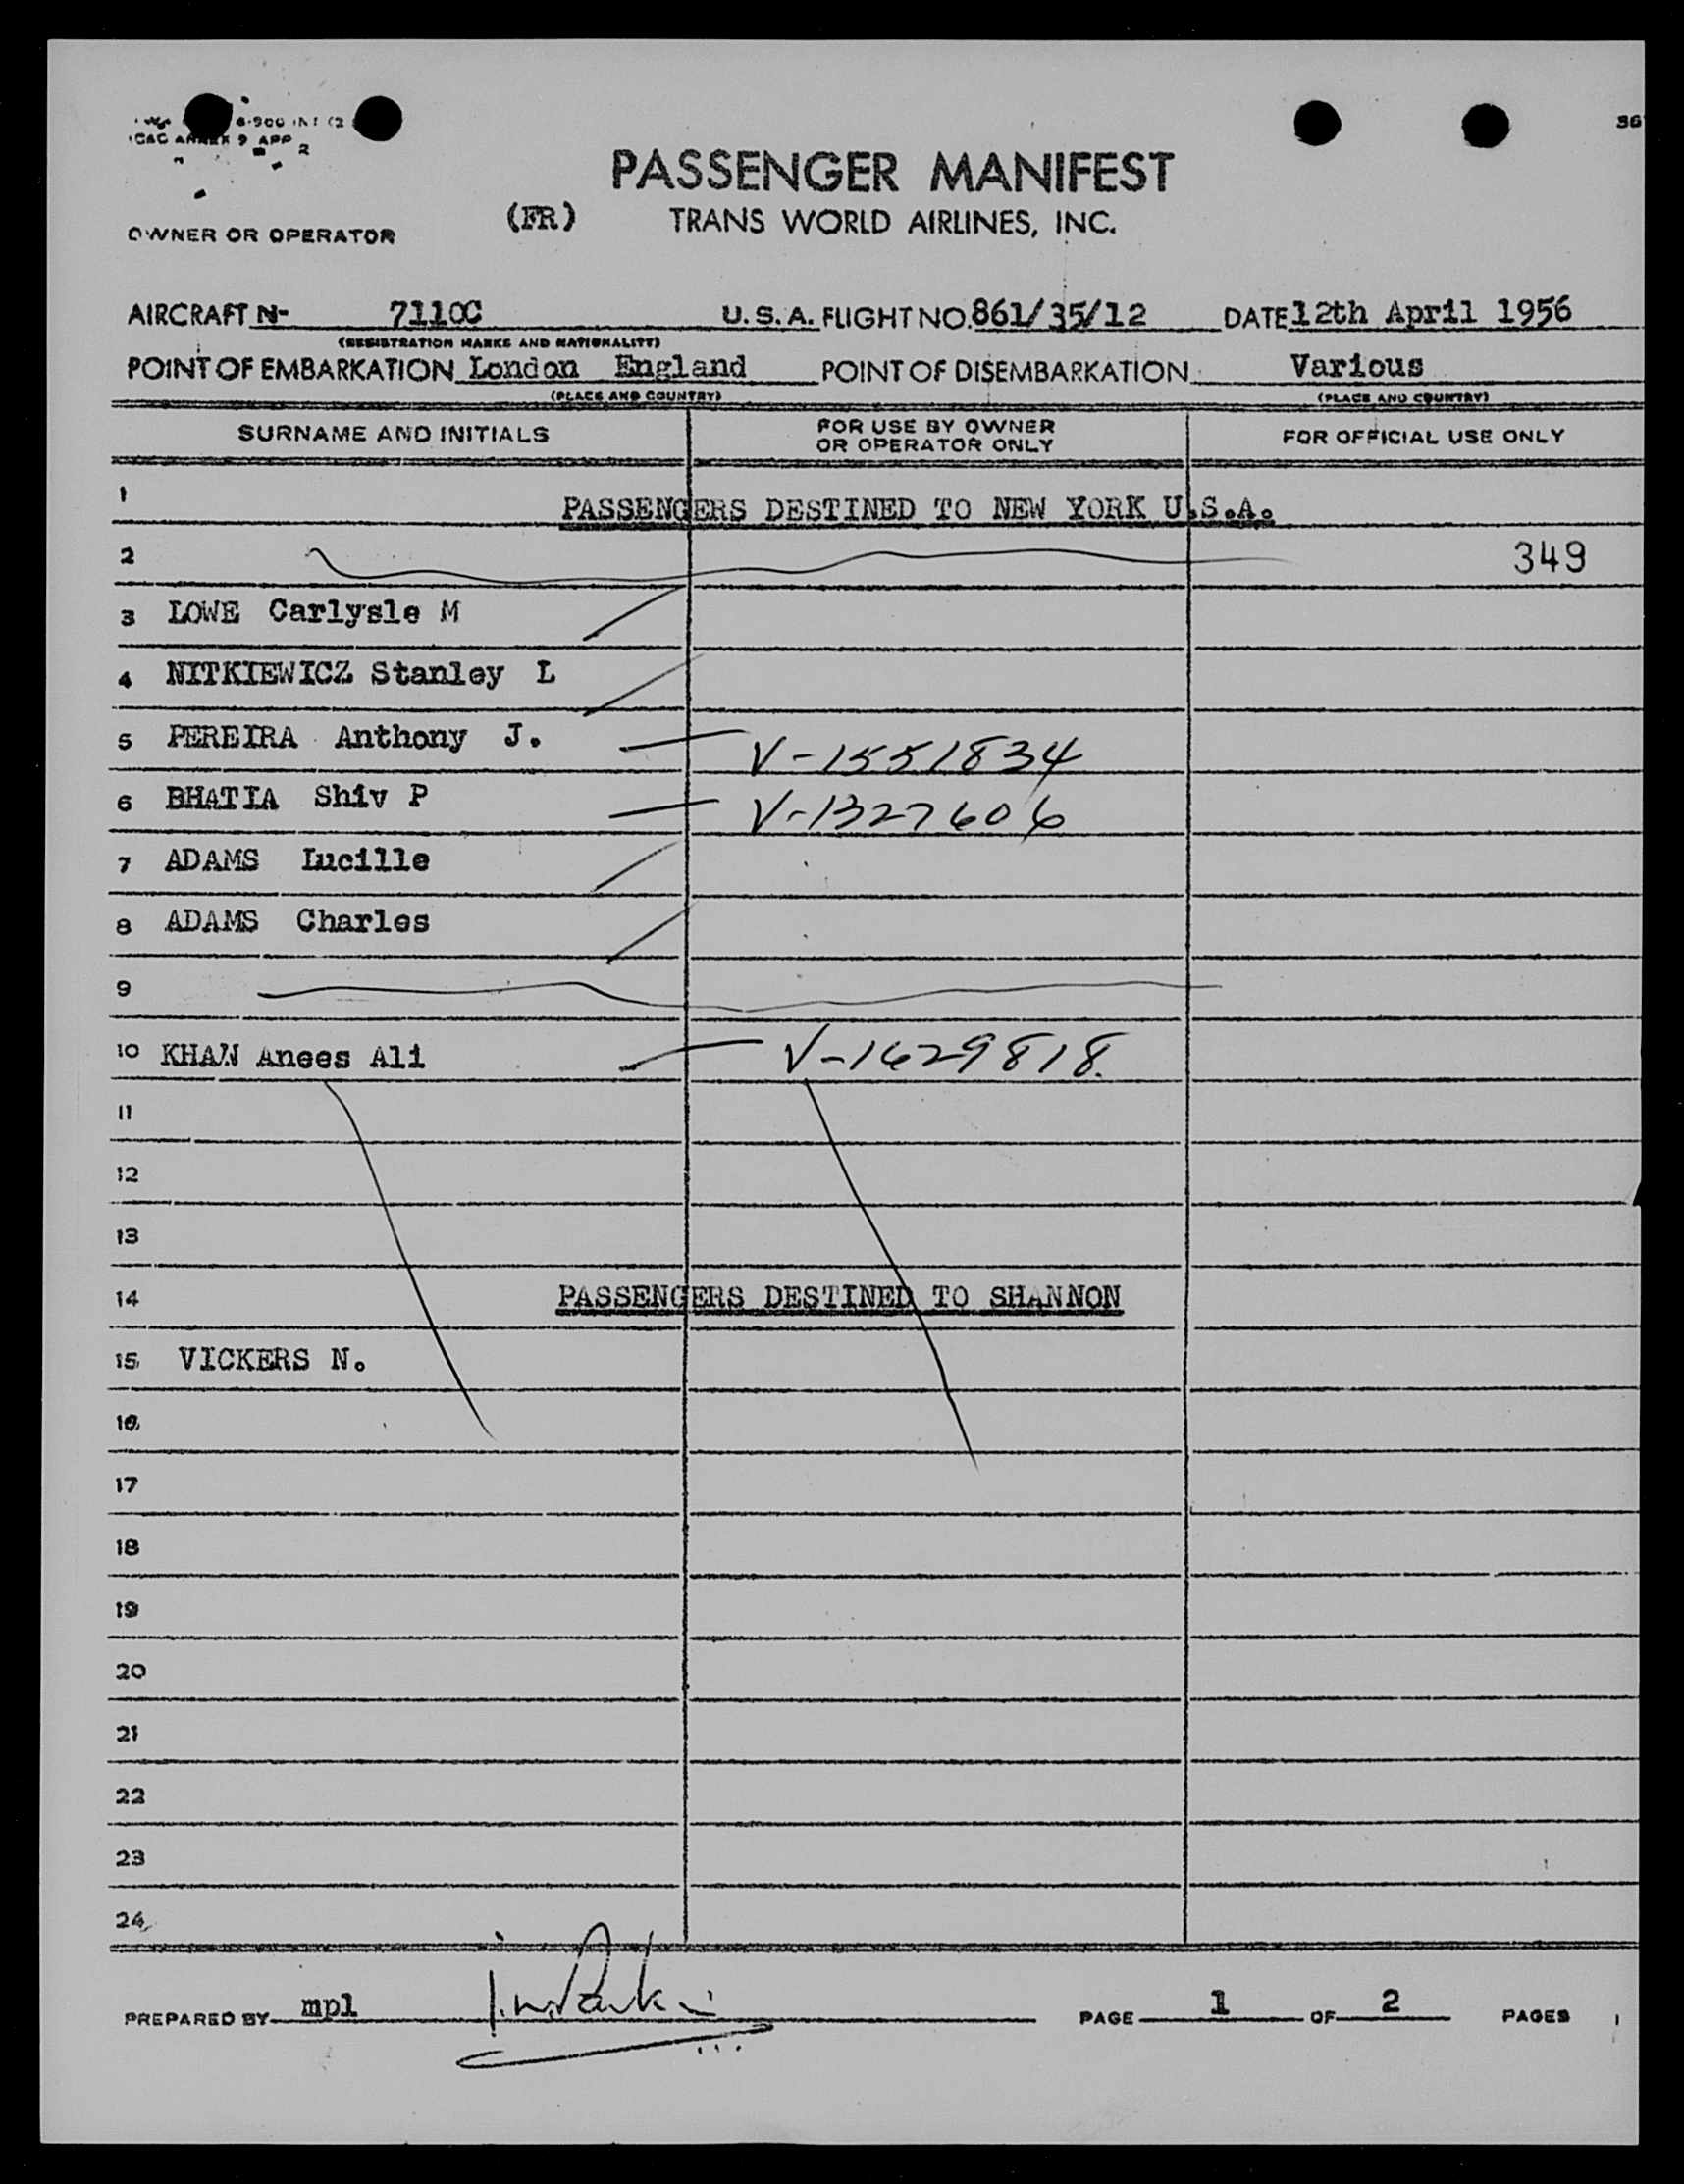 ICAO ANNEX 9 APP 2
36
PASSENGER MANIFEST
OWNER OR OPERATOR (FR) TRANS WORLD AIRLINES, INC.
AIRCRAFT N- 7110C U.S.A. FLIGHT NO. 861/35/12 DATE 12th April 1956
(REGISTRATION MARKS AND NATIONALITY)
POINT OF EMBARKATION London England POINT OF DISEMBARKATION Various
(PLACE AND COUNTRY) (PLACE AND COUNTRY)
SURNAME AND INITIALS FOR USE BY OWNER OR OPERATOR ONLY FOR OFFICIAL USE ONLY
1 PASSENGERS DESTINED TO NEW YORK U.S.A.
2 349
3 LOWE Carlysle M
4 NITKIEWICZ Stanley L
5 PEREIRA Anthony J. V-1551834
6 BHATIA Shiv P V-1327606
7 ADAMS Lucille
8 ADAMS Charles
9
10 KHAN Anees Ali V-1629818.
11
12
13
14 PASSENGERS DESTINED TO SHANNON
15 VICKERS N.
16
17
18
19
20
21
22
23
24
PREPARED BY mpl PAGE 1 OF 2 PAGES